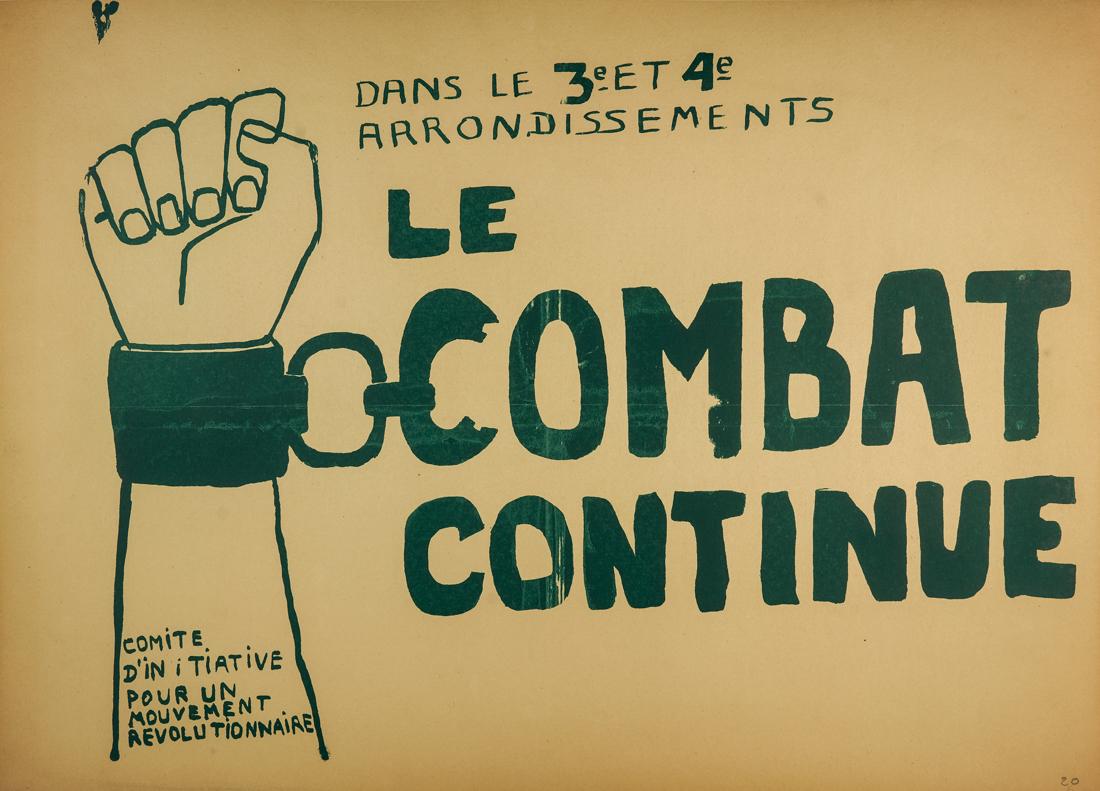 DANS LE 3e ET 4e
ARRONDISSEMENTS
LE
COMBAT
CONTINUE
COMiTE
D'iNiTiATiVE
POUR UN
MOUVEMENT
REVOLUTiONNAiRE
20